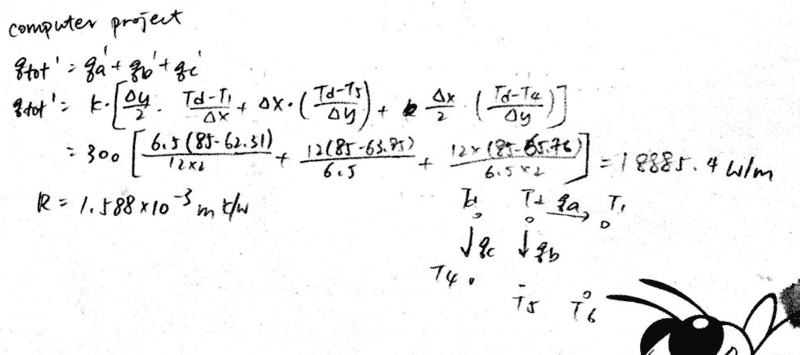 computer project
qtot' = qa' + qb' + qc'
qtot' = k·[Δy/2 · (Td-T1)/Δx + Δx·((Td-T5)/Δy) + Δx/2 · ((Td-T4)/Δy)]
= 300 [6.5(85-62.31)/(12×2) + 12(85-63.85)/6.5 + 12×(85-65.76)/(6.5×2)] = 18885.4 w/m
R = 1.588×10⁻³ m k/w
Td qa T1
qc qb
T4
T5 T6